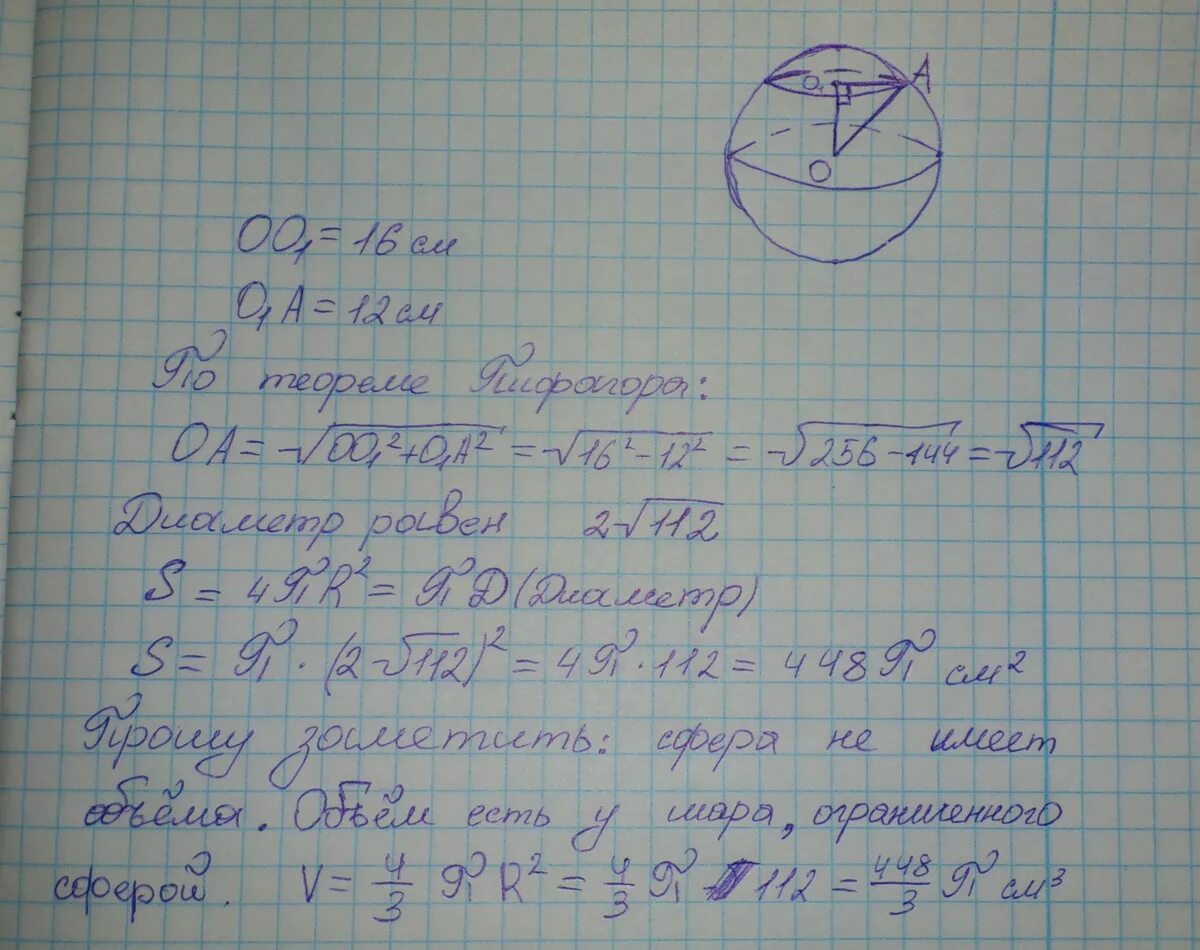 A
O₁
O
OO₁ = 16 см
O₁A = 12 см
По теореме Пифагора:
OA = √(OO₁² + O₁A²) = √(16² - 12²) = √(256 - 144) = √112
Диаметр равен 2√112
S = 4πR² = πD (Диаметр)
S = π · (2√112)² = 4π · 112 = 448π см²
Прошу заметить: сфера не имеет
объёма. Объём есть у шара, ограниченного
сферой. V = 4/3 πR² = 4/3 π · 112 = 448/3 π см³